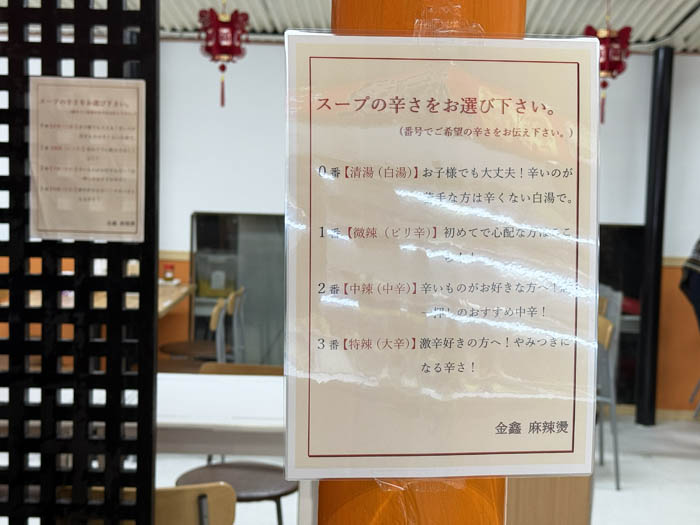 スープの辛さをお選び下さい。
(番号でご希望の辛さをお伝え下さい。)
0番【清湯(白湯)】お子様でも大丈夫!辛いのが
苦手な方は辛くない白湯で。
1番【微辣(ピリ辛)】初めてで心配な方はここ
2番【中辣(中辛)】辛いものがお好きな方へ!
押しのおすすめ中辛!
3番【特辣(大辛)】激辛好きの方へ!やみつきに
なる辛さ!
金鑫 麻辣燙
スープの辛さをお選び下さい。
金鑫 麻辣燙